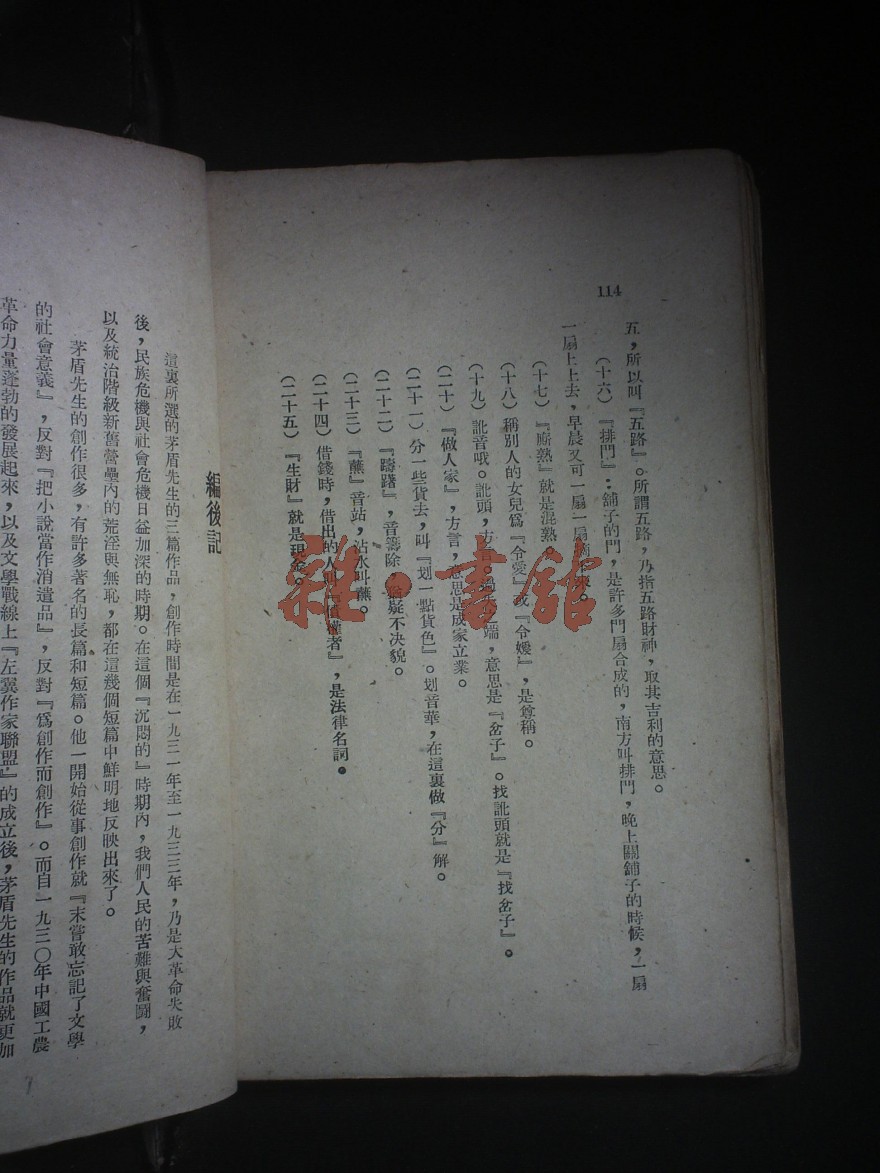 114
五，所以叫『五路』。所謂五路，乃指五路財神，取其吉利的意思。
（十六）『排門』：舖子的門，是許多門扇合成的，南方叫排門，晚上關舖子的時候，一扇
一扇上上去，早晨又可一扇一扇下來。
（十七）『廝熟』就是混熟。
（十八）稱別人的女兒爲『令愛』或『令嬡』，是尊稱。
（十九）訿音哦。訿頭，方言。過失之端，意思是『岔子』。找訿頭就是『找岔子』。
（二十）『做人家』，方言，意思是成家立業。
（二十一）分一些貨去，叫『划一點貨色』。划音華，在這裏做『分』解。
（二十二）『躊躇』，音籌除，猶疑不决貌。
（二十三）『蘸』音站，沾水叫蘸。
（二十四）借錢時，借出的人叫『債權者』，是法律名詞。
（二十五）『生財』就是現金。
編後記
這裏所選的茅盾先生的三篇作品，創作時間是在一九三一年至一九三三年，乃是大革命失敗
後，民族危機與社會危機日益加深的時期。在這個『沉悶的』時期內，我們人民的苦難與奮鬪，
以及統治階級新舊營壘內的荒淫與無恥，都在這幾個短篇中鮮明地反映出來了。
茅盾先生的創作很多，有許多著名的長篇和短篇。他一開始從事創作就『未嘗敢忘記了文學
的社會意義』，反對『把小說當作消遣品』，反對『爲創作而創作』。而自一九三〇年中國工農
革命力量蓬勃的發展起來，以及文學戰線上『左翼作家聯盟』的成立後，茅盾先生的作品就更加
雜·書舘